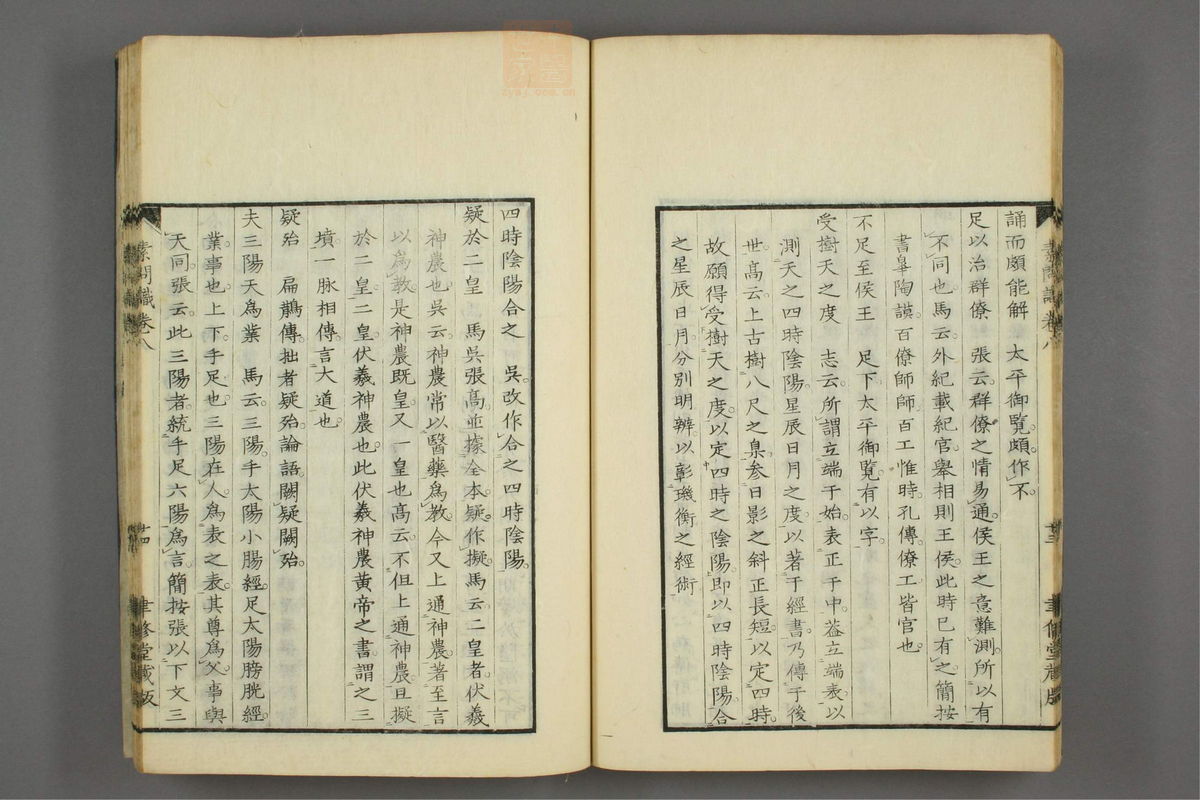 誦而頗能解　太平御覽。頗作不。
足以治群僚　張云。群僚之情易通。侯王之意難測。所以有
不同也。馬云。外紀載紀官。舉相則王侯。此時已有之。簡按
書皐陶謨。百僚師師。百工惟時。孔傳僚工皆官也
不足至侯王　足下。太平御覽。有以字。
受樹天之度　志云。所謂立端于始。表正于中。蓋立端表以
測天之四時陰陽。星辰日月之度。以著于經書。乃傳于後
世。高云。上古樹八尺之臬。參日影之斜正長短。以定四時。
故願得受樹天之度。以定四時之陰陽。即以四時陰陽。合
之星辰日月。分別明辨。以彰璣衡之經術
素問識 卷八
廿三
聿修堂藏版
四時陰陽合之　吳。改作合之四時陰陽。
疑於二皇　馬吳張高並據全本。疑作擬。馬云。二皇者。伏羲
神農也。吳云。神農常以醫藥爲教。今又上通神農。著至言
以爲教。是神農既皇。又一皇也。高云。不但上通神農。且擬
於二皇。二皇。伏羲神農也。此伏羲神農黃帝之書。謂之三
墳。一脈相傳。言大道也。
疑殆　扁鵲傳。拙者疑殆。論語。闕疑闕殆。
夫三陽天爲業　馬云。三陽。手太陽小腸經。足太陽膀胱經。
業。事也。上下。手足也。三陽在人爲表之表。其尊爲父。事與
天同。張云。此三陽者。統手足六陽爲言。簡按張以下文三
素問識 卷八
廿四
聿修堂藏版